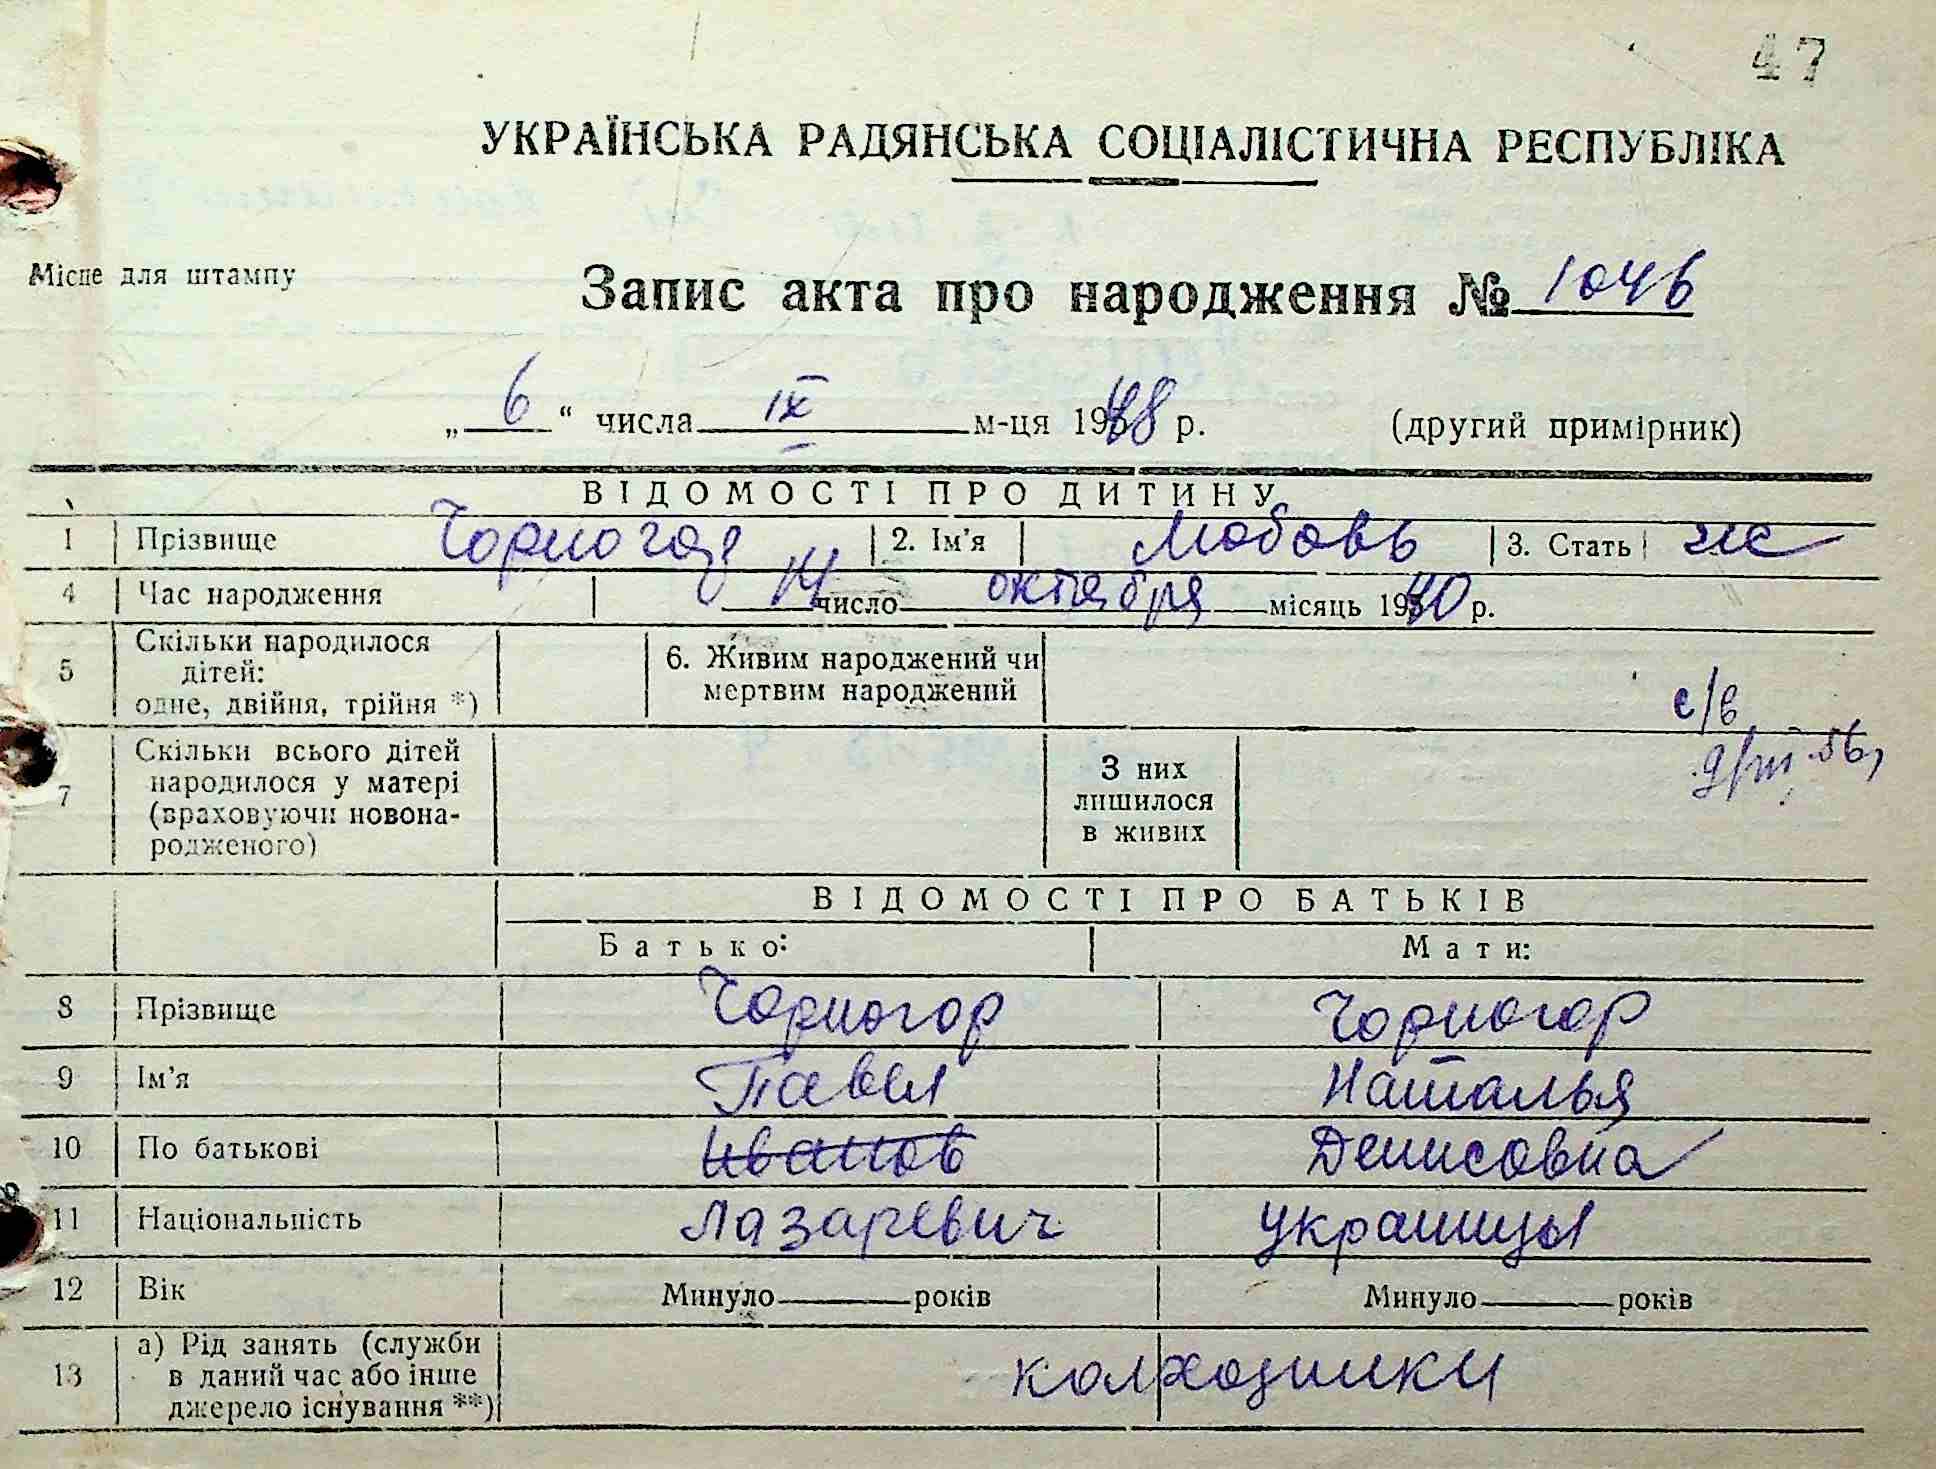 47
УКРАЇНСЬКА РАДЯНСЬКА СОЦІАЛІСТИЧНА РЕСПУБЛІКА
Місце для штампу
Запис акта про народження № 1046
„ 6 “ числа IX м-ця 1948 р. (другий примірник)
ВІДОМОСТІ ПРО ДИТИНУ
1 Прізвище Чорногор 2. Ім’я Любовь 3. Стать ж
4 Час народження 14 число октября місяць 1940 р.
5 Скільки народилося дітей: одне, двійня, трійня *) 6. Живим народжений чи мертвим народжений
с/в
9/III 56
7 Скільки всього дітей народилося у матері (враховуючи новонародженого) З них лишилося в живих
ВІДОМОСТІ ПРО БАТЬКІВ
Батько: Мати:
8 Прізвище Чорногор Чорногор
9 Ім’я Павел Наталья
10 По батькові Иванов Денисовна
11 Національність Лазаревич украинцы
12 Вік Минуло років Минуло років
13 а) Рід занять (служби в даний час або інше джерело існування **) колхозники